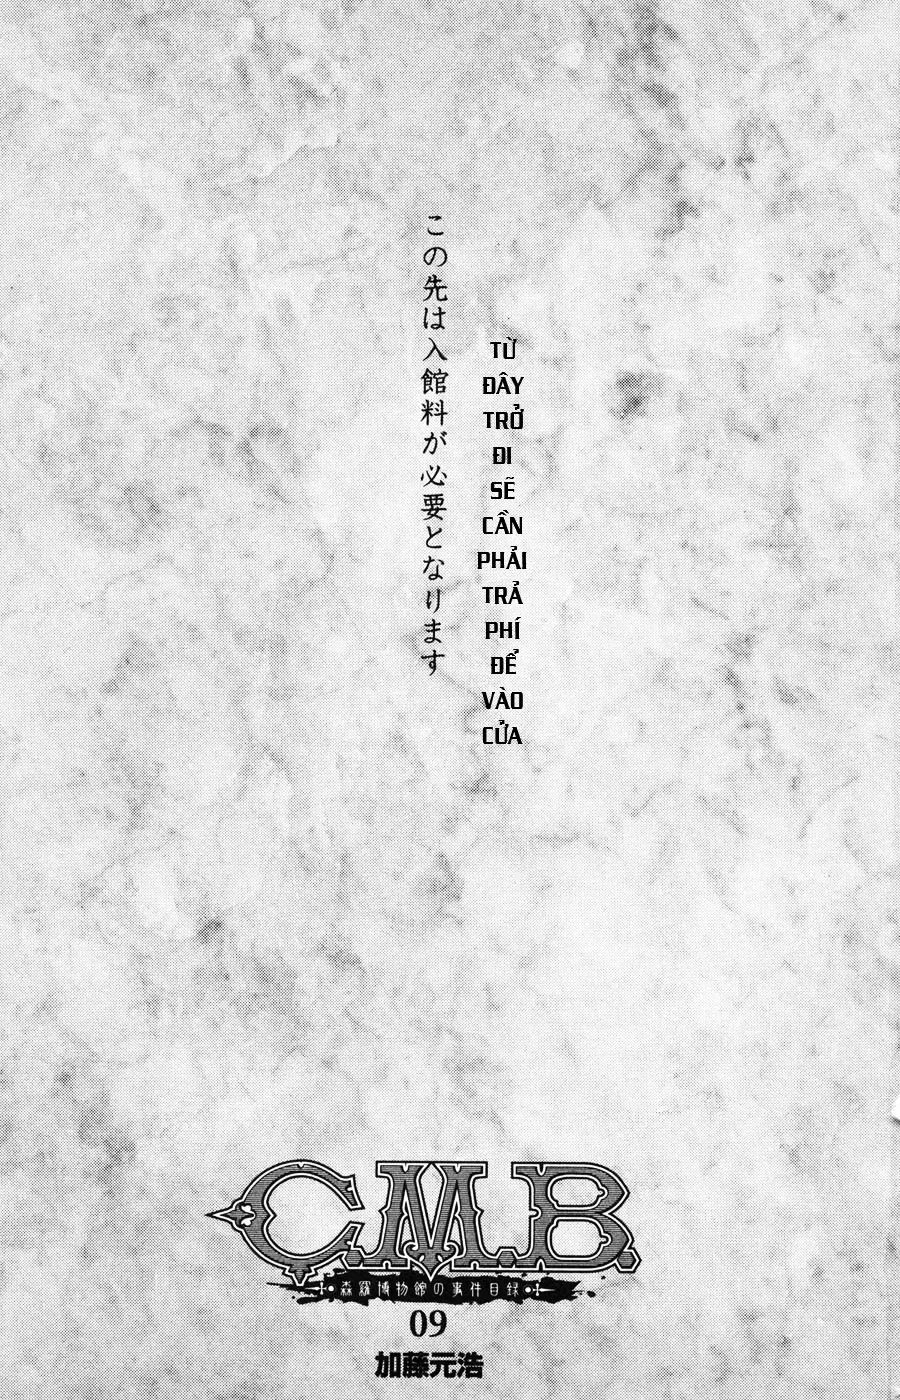 TỪ
ĐÂY
TRỞ
ĐI
SẼ
CẦN
PHẢI
TRẢ
PHÍ
ĐỂ
VÀO
CỬA
この先は入館料が必要となります
C.M.B.
森羅博物館の事件目録
09
加藤元浩